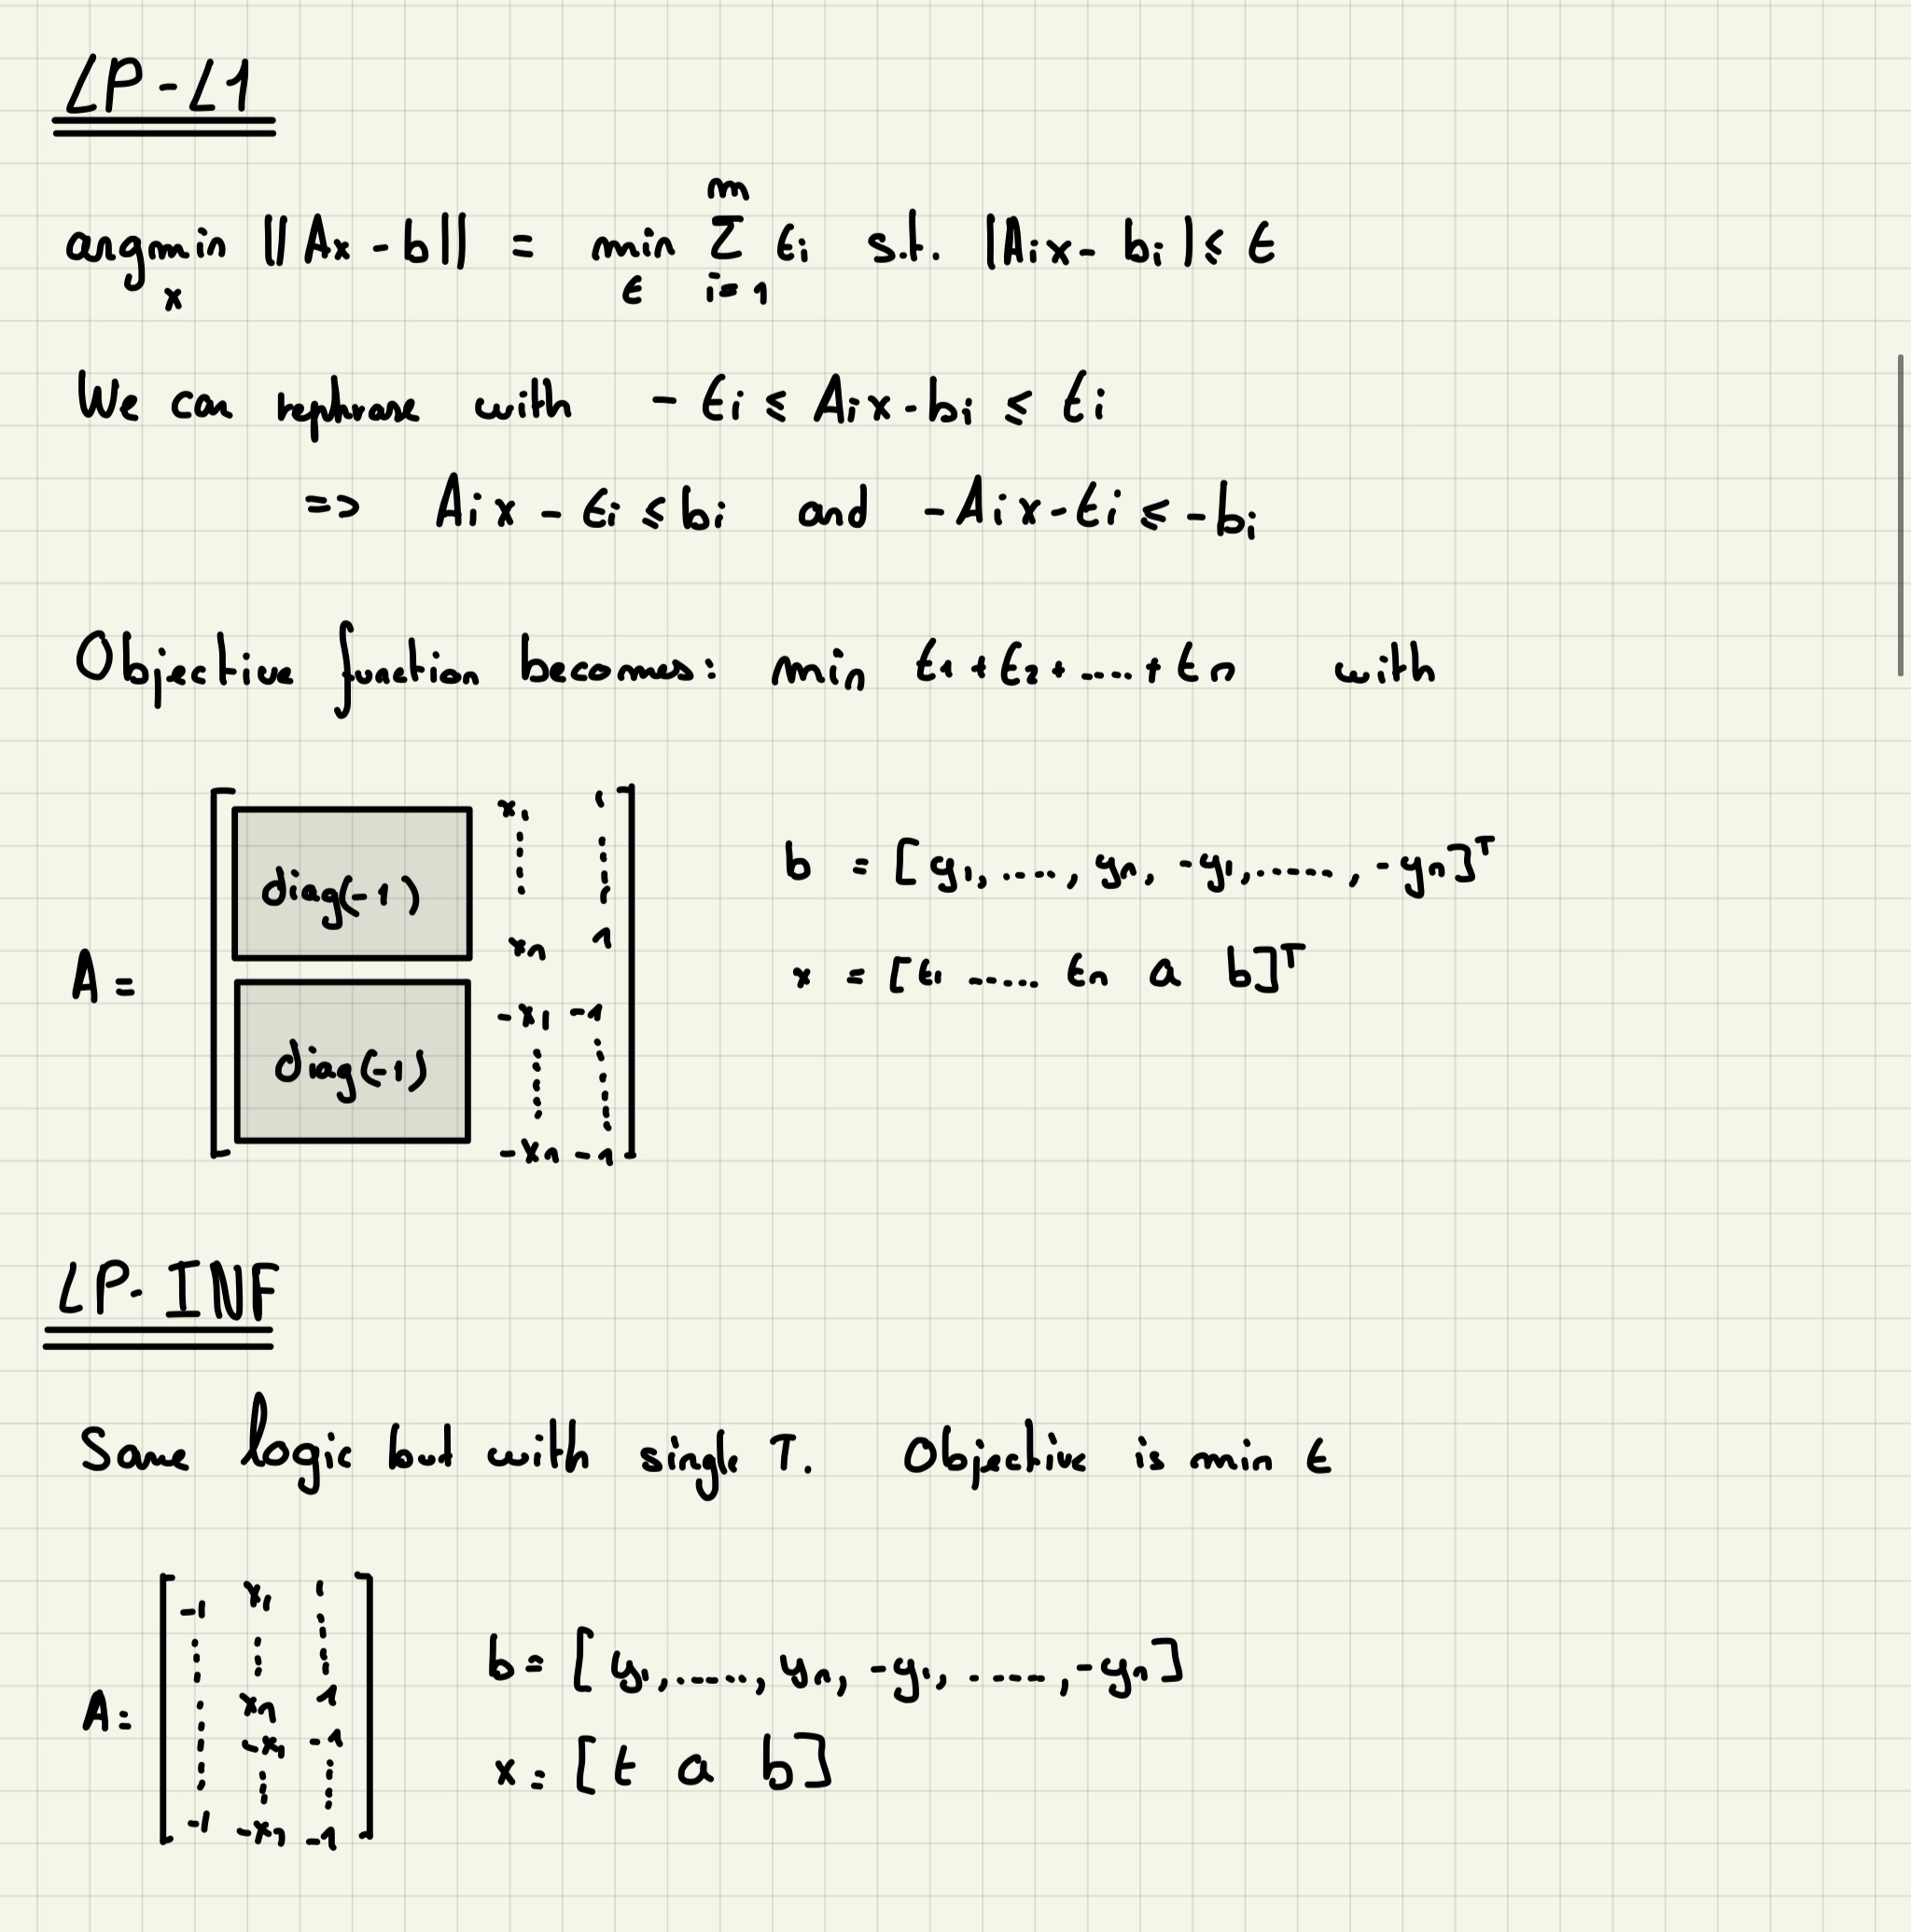 LP-L1
m
argmin ||Ax - b|| = min Σ ti s.t. |Aix - bi| ≤ t
x t i=1
We can rephrase with - ti ≤ Aix - bi ≤ ti
=> Aix - ti ≤ bi and -Aix - ti ≤ -bi
Objective function becomes: min t1 + t2 + .... + tn with
x1 1
diag(-1)
xn 1
A =
-x1 -1
diag(-1)
-xn -1
b = [y1, ...., yn, -y1, ....., -yn]T
x = [t1 ..... tn a b]T
LP-INF
Same logic but with single T. Objective is min t
-1 x1 1
xn 1
A =
-x1 -1
-1 -xn -1
b = [y1, ....., yn, -y1, ....., -yn]
x = [t a b]